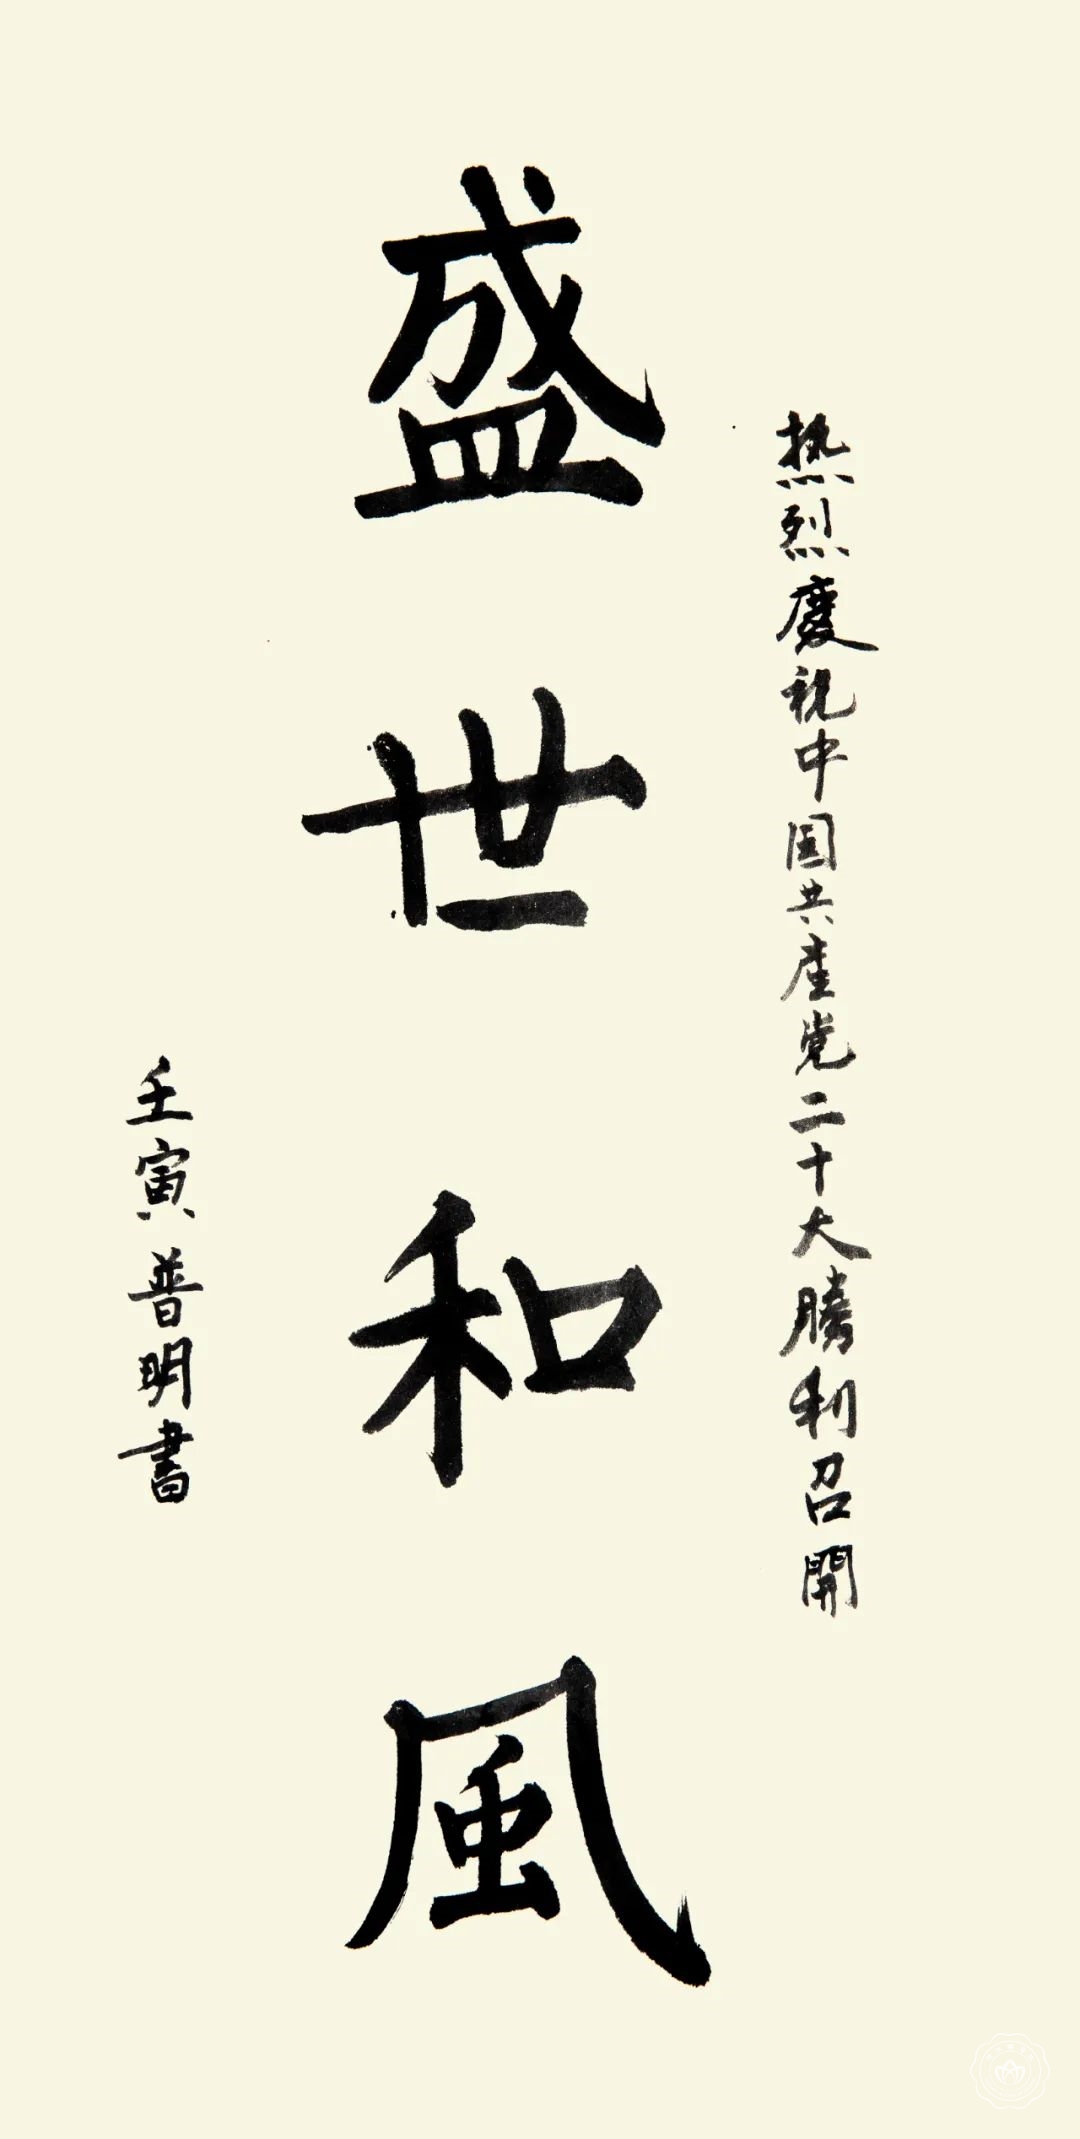 热烈慶祝中国共産党二十大勝利召開
盛世和風
壬寅普明書